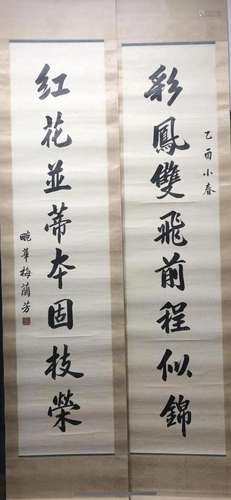 彩鳳雙飛前程似錦
乙酉小春
紅花並蒂本固枝榮
畹華梅蘭芳